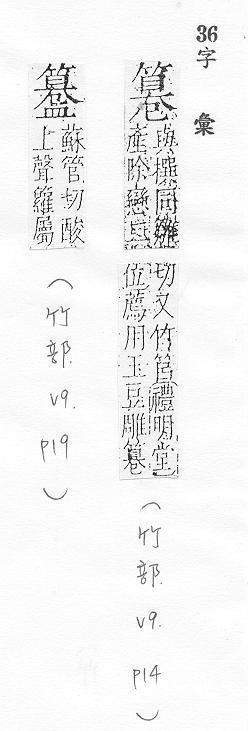 36
字彙
同雛
產除戀
切又竹筥禮明堂
位薦用玉豆雕篹
(竹部. v9. p14)
蘇管切酸
上聲籮屬
(竹部. v9. p19)